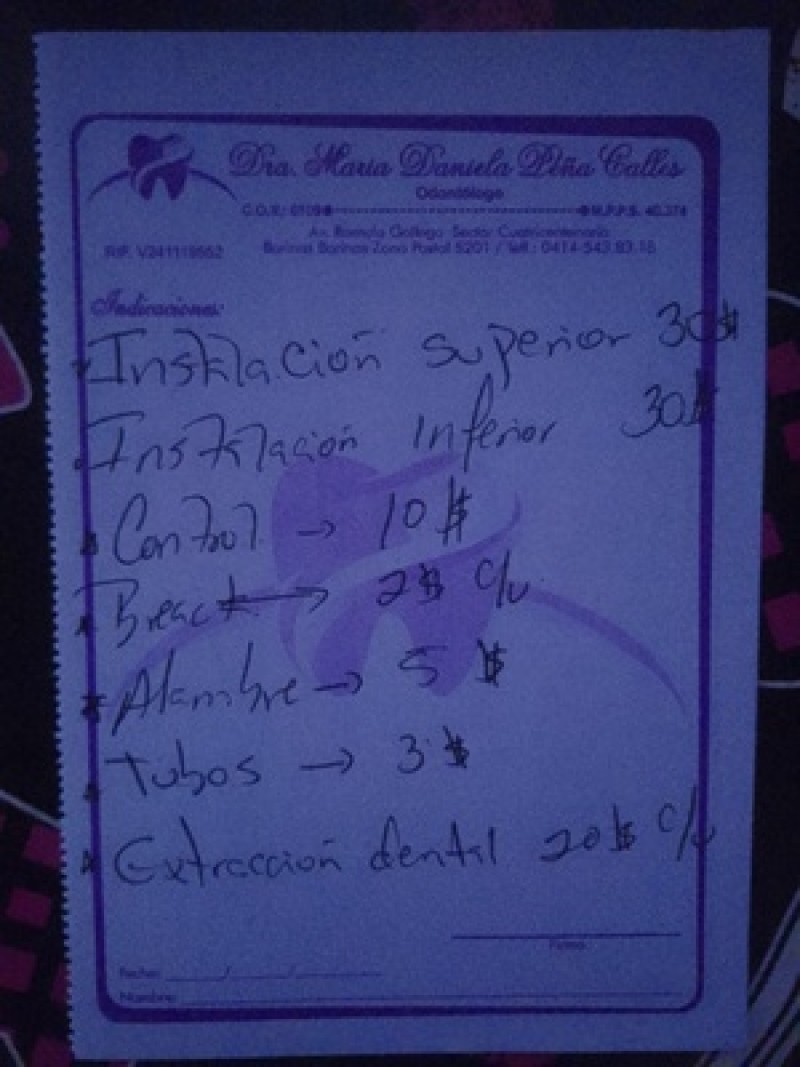 Dra. María Daniela Peña Calles
Odontólogo
C.O.V.: 6109 M.P.P.S. 40.374
Av. Romulo Gallego Sector Cuatricentenario
RIF. V241119552
Barinas Barinas Zona Postal 5201 / Telf.: 0414-543.83.15
Indicaciones:
Instalación superior 30$
Instalación Inferior 30$
Control → 10 $
Breack → 2$ c/u
Alambre → 5 $
Tubos → 3 $
Extracción dental 20$ c/u
Firma
Fecha: ____/____/____
Nombre: